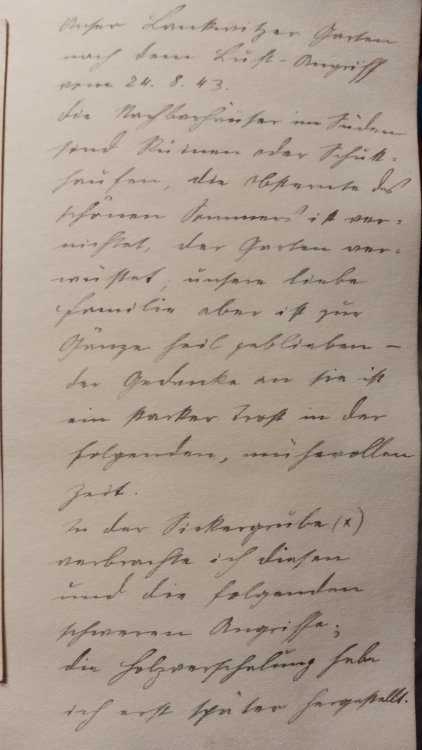 Unser Lankwitzer Garten
nach dem Luft-Angriff
vom 24. 8. 43.
Die Nachbarhäuser im Süden
sind Ruinen oder Schutt-
haufen, die Obsternte des
schönen Sommers ist ver-
nichtet, der Garten ver-
wüstet; unsere liebe
Familie aber ist zur
Gänze heil geblieben –
der Gedanke an sie ist
ein starker Trost in der
folgenden, mühevollen
Zeit.
In der Sickergrube (x)
verbrachte ich diesen
und die folgenden
schweren Angriffe;
die Holzverschalung habe
ich erst später hergestellt.